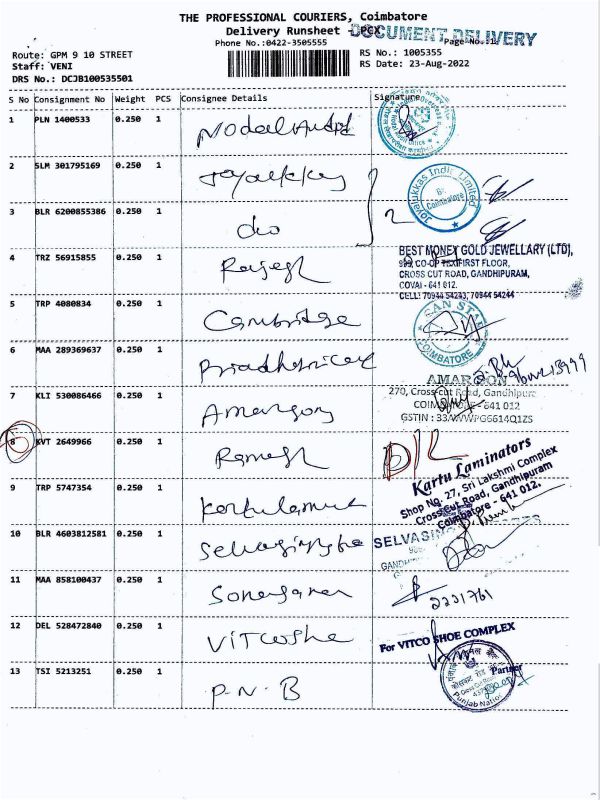 THE PROFESSIONAL COURIERS, Coimbatore
Delivery Runsheet - DCX
DOCUMENT DELIVERY
Phone No.:0422-3505555
Page No.:1
Route: GPM 9 10 STREET
RS No.: 1005355
Staff: VENI
RS Date: 23-Aug-2022
DRS No.: DCJB100535501
S No Consignment No Weight PCS Consignee Details Signature
1 PLN 1400533 0.250 1
2 SLM 301795169 0.250 1
Joyalukkas India Limited
Coimbatore
3 BLR 6200855386 0.250 1 do 2
4 TRZ 56915855 0.250 1 Rajesh
BEST MONEY GOLD JEWELLARY (LTD),
FIRST FLOOR,
CROSS CUT ROAD, GANDHIPURAM,
COVAI - 641 012.
CELL: 70944 54243, 70944 54244
5 TRP 4080834 0.250 1 Cambridge
CAN STAR
COIMBATORE
6 MAA 289369637 0.250 1
AMARGON
7 KLI 530086466 0.250 1 Amargon
270, Cross-cut Road, Gandhipuram
COIMBATORE - 641 012
GSTIN : 33AWWPG6614Q1ZS
8 KVT 2649966 0.250 1 Ramesh D/L
Kartu Laminators
Shop No. 27, Sri Lakshmi Complex
Cross Cut Road, Gandhipuram
Coimbatore - 641 012.
9 TRP 5747354 0.250 1
10 BLR 4603812581 0.250 1
SELVASING
11 MAA 858100437 0.250 1
2231761
12 DEL 528472840 0.250 1 Vitcoshe
For VITCO SHOE COMPLEX
Partner
13 TSI 5213251 0.250 1 P.N.B
Punjab National